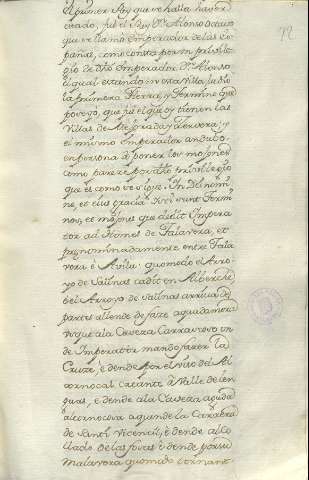 el primer Rey que se halla haver
estado, fue el Rey Dn. Alonso octavo
que se llamo Emperador de las es
pañas, como consta por un privilegio
de dho Emperador Dn. Alonso
el qual estando en esta Villa, le dio
la primera tierra, y termino que
poveyó, que fue el que oy tienen las
Villas de y Cervera; y
el mismo Emperador anduvo
en persona a poner los mojones
como parece por dho privilegio
que es como se sigue. In Dei nomi
ne, et eius gracia sunt termi
nos, et mojones que dedit Impera
tor ad Homes de Talavera, et
prenominadamente entre Tala
vera è Avila: quomodo el Arro
yo de Salinas cadit en Alberche
del Arroyo de Salinas arriva de
partes allende de faze aguda mera
usque ala Caveza Carrasco un
de Imperator mando fazer la
Cruze è dende por el rrio del Al
cornocal catante à Valle de len
guas, è dende ala Caveza aguda
alcornocosa aquende la Carrera
de Santi Vicentii, è dende al Co
llado de las è dende
 quomodo tornant